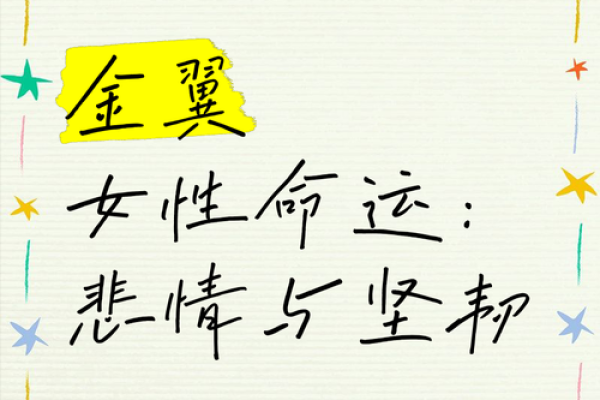 金翼
女性命运：
悲情与坚韧